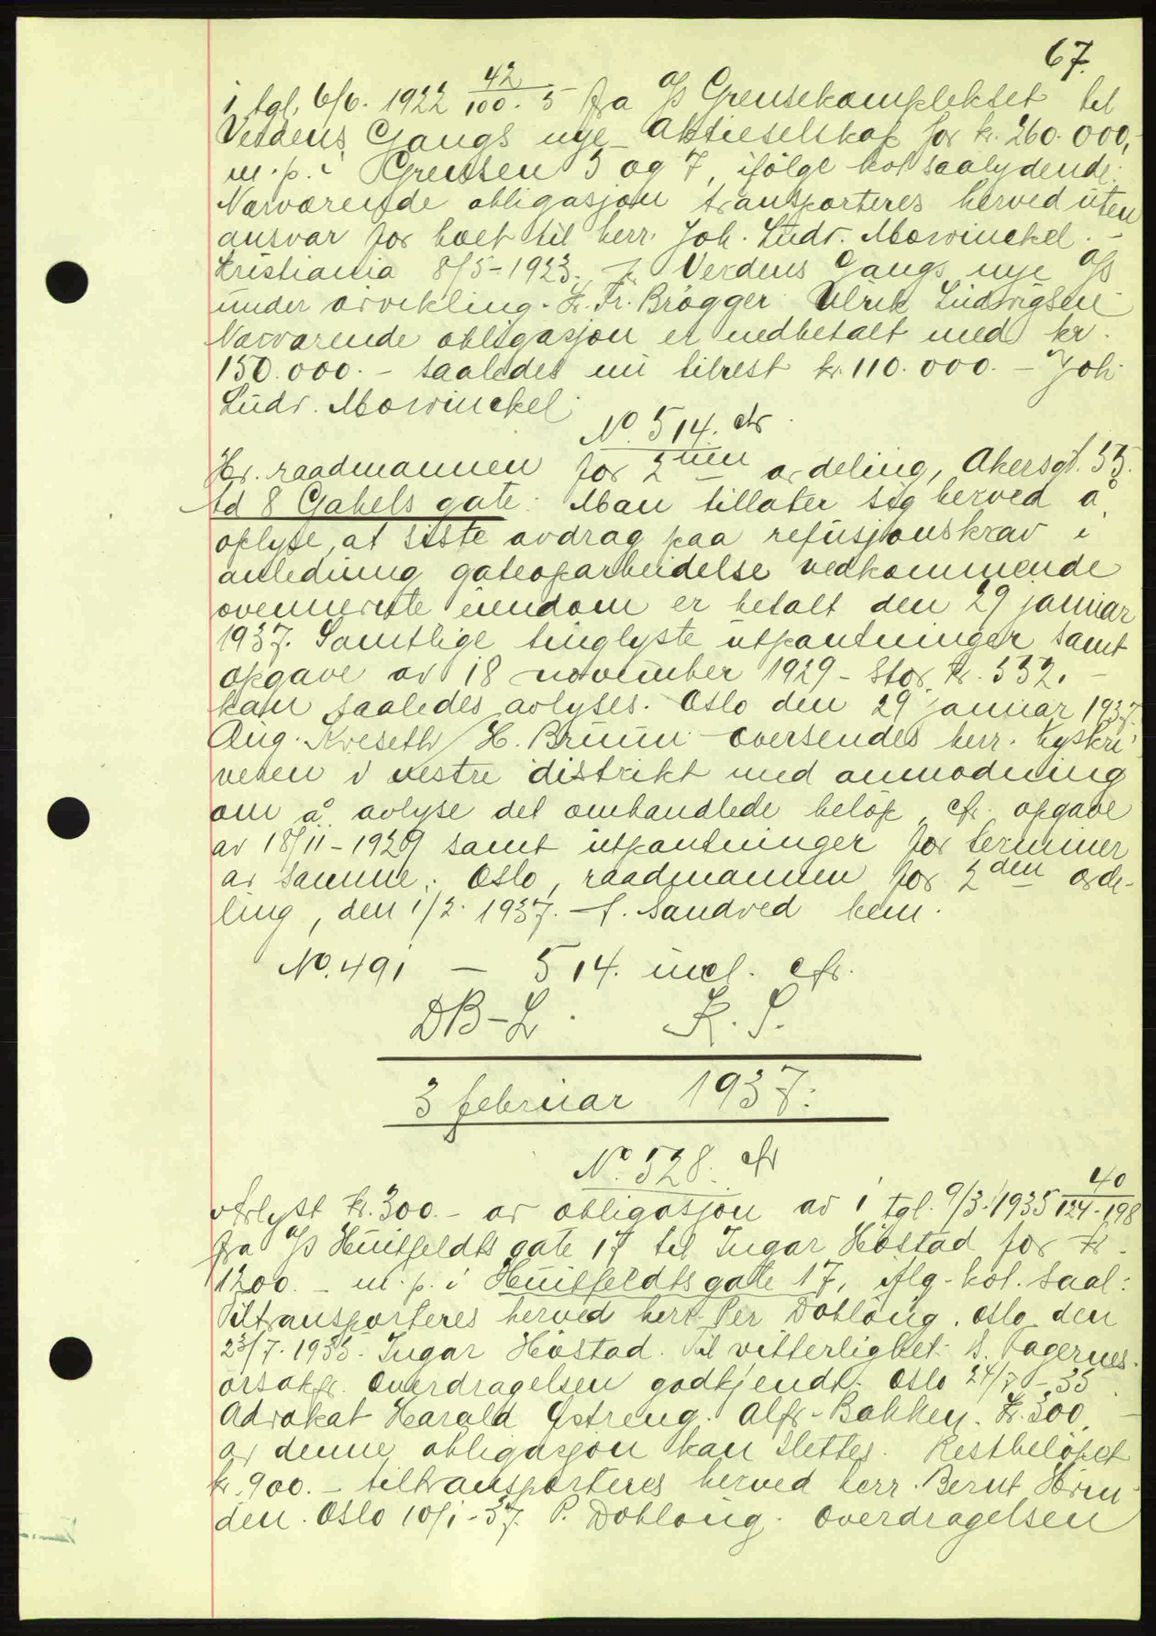 67.
i tgl. 6/6. 1922 42/100. 5 fra A/S Grensekomplekset til
Verdens Gangs nye Aktieselskap for kr. 260.000,-
m.p. i Grensen 5 og 7, ifölge kol saalydende:
Nærværende obligasjon transporteres herved uten
ansvar for hoet til herr Joh. Ludv. Mowinckel. -
Kristiania 8/5-1923. f. Verdens Gangs nye A/S
under avvikling. Kr. Fr. Brögger Ulrik Ludvigsen
Nærværende obligasjon er nedbetalt med kr.
150.000. - saaledes nu tilrest kr. 110.000. - Joh.
Ludv. Mowinckel.
No. 514. ctr
Hr. raadmannen for 2nen avdeling, Akersgt. 55.
Ad 8 Gabels gate. Man tillater sig herved å
oplyse, at siste avdrag paa refusjonskrav i
anledning gateoparbeidelse vedkommende
ovennevnte eiendom er betalt den 29 januar
1937. Samtlige tinglyste utpantninger samt
opgave av 18 november 1929 - stor kr. 332. -
kan saaledes avlyses. Oslo den 29 januar 1937.
Aug. Kveseth / H. Bruun - oversendes herr byskri
veren i vestre distrikt med anmodning
om å avlyse det omhandlede belöp, cfr. opgave
av 18/11-1929 samt utpantninger for terminer
av samme. Oslo, raadmannen for 2den avde-
ling, den 1/2. 1937. - f. Sandved kem.
No. 491 - 514. incl. cfr.
DB-L. K.S.
3 februar 1937.
No. 528. ctr
Avlyst kr. 300. - av obligasjon av i tgl. 9/3. 1935 40/124-198
fra A/S Huitfeldts gate 17 til Ingar Höstad for kr.
1200. - m.p. i Huitfeldts gate 17, iflg. kol. saal:
Tiltransporteres herved herr Per Doblong. Oslo den
23/7. 1935. Ingar Höstad. Til vitterlighet: S. Fagernes.
orsakfr. Overdragelsen godkjendt. Oslo 24/7-35
Advokat Harald Östreng. Alfr. Bakken. Kr. 300. -
av denne obligasjon kan slettes. Restbelöpet
kr. 900. - tiltransporteres herved herr Bernt
den. Oslo 10/1-37. P. Doblong. Overdragelsen